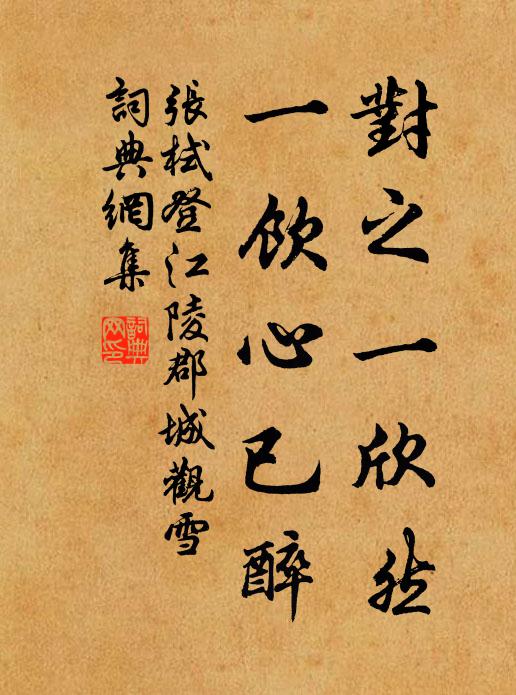 對之一欣然
一飲心已醉
張栻登江陵郡城觀雪
詞典網集
詞典
网印